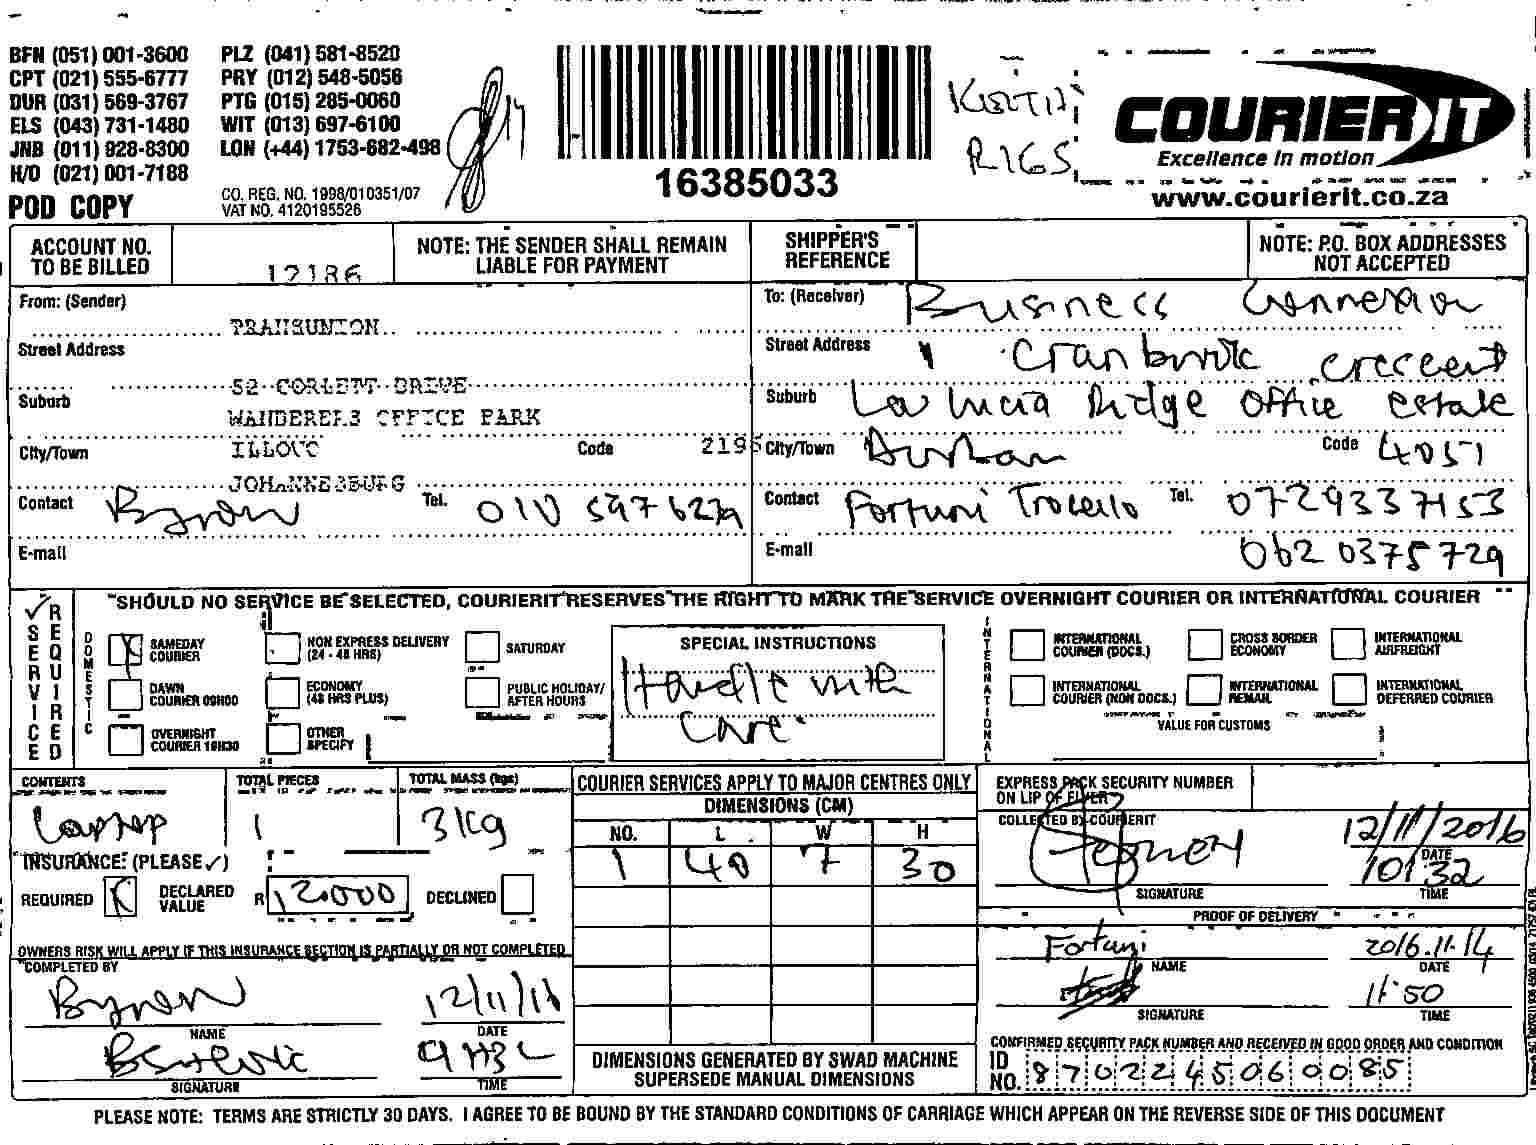 BFN (051) 001-3600 PLZ (041) 581-8520
CPT (021) 555-6777 PRY (012) 548-5056
DUR (031) 569-3767 PTG (015) 285-0060
ELS (043) 731-1480 WIT (013) 697-6100
JNB (011) 928-8300 LON (+44) 1753-682-498
H/O (021) 001-7188
POD COPY
CO. REG. NO. 1998/010351/07
VAT NO. 4120195526
16385033
R165
COURIER IT
Excellence in motion
www.courierit.co.za
ACCOUNT NO. TO BE BILLED 12186
NOTE: THE SENDER SHALL REMAIN LIABLE FOR PAYMENT
SHIPPER'S REFERENCE
NOTE: P.O. BOX ADDRESSES NOT ACCEPTED
From: (Sender)
TRANSUNION
Street Address
52 CORLETT DRIVE
Suburb
WANDERERS OFFICE PARK
City/Town ILLOVO Code 2196
JOHANNESBURG
Contact Byron Tel. 010 597 6279
E-mail
To: (Receiver) Business Connexion
Street Address 1 Cranbrook crescent
Suburb La lucia Ridge Office estate
City/Town Durban Code 4051
Contact Fortuni Trocello Tel. 0729337153
E-mail 062 0375729
SERVICE REQUIRED
"SHOULD NO SERVICE BE SELECTED, COURIERIT RESERVES THE RIGHT TO MARK THE SERVICE OVERNIGHT COURIER OR INTERNATIONAL COURIER"
DOMESTIC
SAMEDAY COURIER
NON EXPRESS DELIVERY (24 - 48 HRS)
SATURDAY
DAWN COURIER 09H00
ECONOMY (48 HRS PLUS)
PUBLIC HOLIDAY/ AFTER HOURS
OVERNIGHT COURIER 10H30
OTHER SPECIFY
SPECIAL INSTRUCTIONS
Handle with
care
INTERNATIONAL
INTERNATIONAL COURIER (DOCS.)
CROSS BORDER ECONOMY
INTERNATIONAL AIRFREIGHT
INTERNATIONAL COURIER (NON DOCS.)
INTERNATIONAL REMAIL
INTERNATIONAL DEFERRED COURIER
VALUE FOR CUSTOMS
CONTENTS TOTAL PIECES TOTAL MASS (kgs)
Laptop 1 3kg
INSURANCE: (PLEASE ✓)
REQUIRED DECLARED VALUE R 12000 DECLINED
OWNERS RISK WILL APPLY IF THIS INSURANCE SECTION IS PARTIALLY OR NOT COMPLETED
COMPLETED BY
Byron 12/11/16
NAME DATE
SIGNATURE TIME
COURIER SERVICES APPLY TO MAJOR CENTRES ONLY
DIMENSIONS (CM)
NO. L W H
1 40 7 30
DIMENSIONS GENERATED BY SWAD MACHINE
SUPERSEDE MANUAL DIMENSIONS
EXPRESS PACK SECURITY NUMBER
ON LIP OF FLYER
COLLECTED BY COURIERIT
12/11/2016
DATE
10:32
SIGNATURE TIME
PROOF OF DELIVERY
Fortuni 2016.11.14
NAME DATE
11:50
SIGNATURE TIME
CONFIRMED SECURITY PACK NUMBER AND RECEIVED IN GOOD ORDER AND CONDITION
ID NO. 8702245060085
PLEASE NOTE: TERMS ARE STRICTLY 30 DAYS. I AGREE TO BE BOUND BY THE STANDARD CONDITIONS OF CARRIAGE WHICH APPEAR ON THE REVERSE SIDE OF THIS DOCUMENT